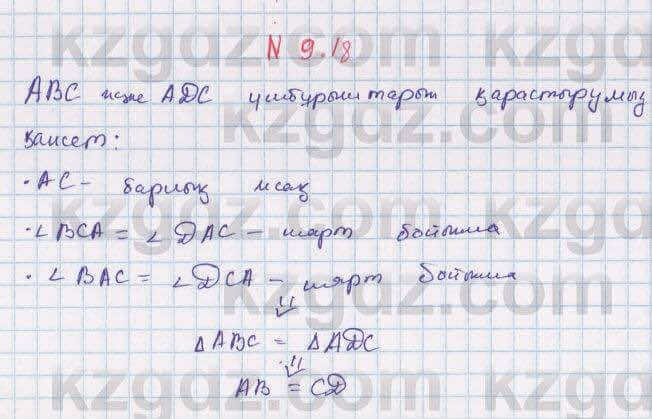 N 9.18
ABC және ADC үшбұрыштарын қарастырумыз
қажет:
· AC - барлық
· ∠ BCA = ∠ DAC - шарт бойынша
· ∠ BAC = ∠ DCA - шарт бойынша
⇓
△ ABC = △ ADC
⇓
AB = CD
kzgdz.com